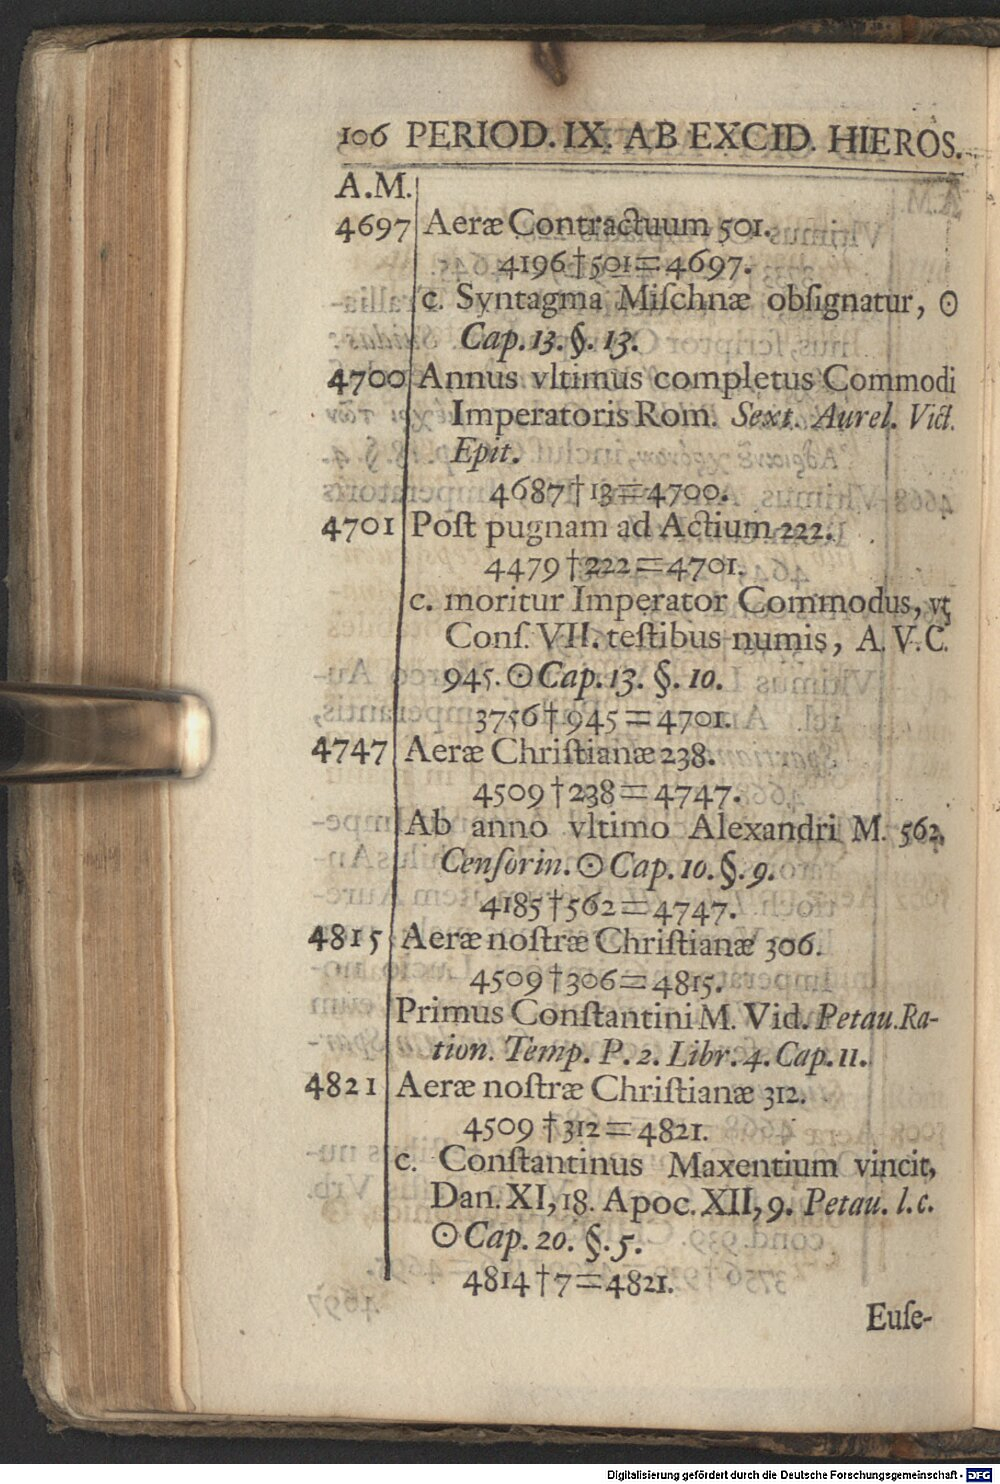 106 PERIOD. IX. AB EXCID. HIEROS.
A.M.
4697 Aeræ Contractuum 501.
4196†501=4697.
c. Syntagma Miſchnæ obſignatur, ☉
Cap. 13. §. 13.
4700 Annus vltimus completus Commodi
Imperatoris Rom. Sext. Aurel. Vict.
Epit.
4687†13=4700.
4701 Poſt pugnam ad Actium 222.
4479†222=4701.
c. moritur Imperator Commodus, vt
Conſ. VII. teſtibus numis, A. V. C.
945. ☉ Cap. 13. §. 10.
3756†945=4701.
4747 Aeræ Chriſtianæ 238.
4509†238=4747.
Ab anno vltimo Alexandri M. 562,
Cenſorin. ☉ Cap. 10. §. 9.
4185†562=4747.
4815 Aeræ noſtræ Chriſtianæ 306.
4509†306=4815.
Primus Conſtantini M. Vid. Petau. Ra-
tion. Temp. P. 2. Libr. 4. Cap. 11.
4821 Aeræ noſtræ Chriſtianæ 312.
4509†312=4821.
c. Conſtantinus Maxentium vincit,
Dan. XI, 18. Apoc. XII, 9. Petau. l. c.
☉ Cap. 20. §. 5.
4814†7=4821.
Euſe-
Digitalisierung gefördert durch die Deutsche Forschungsgemeinschaft - DFG